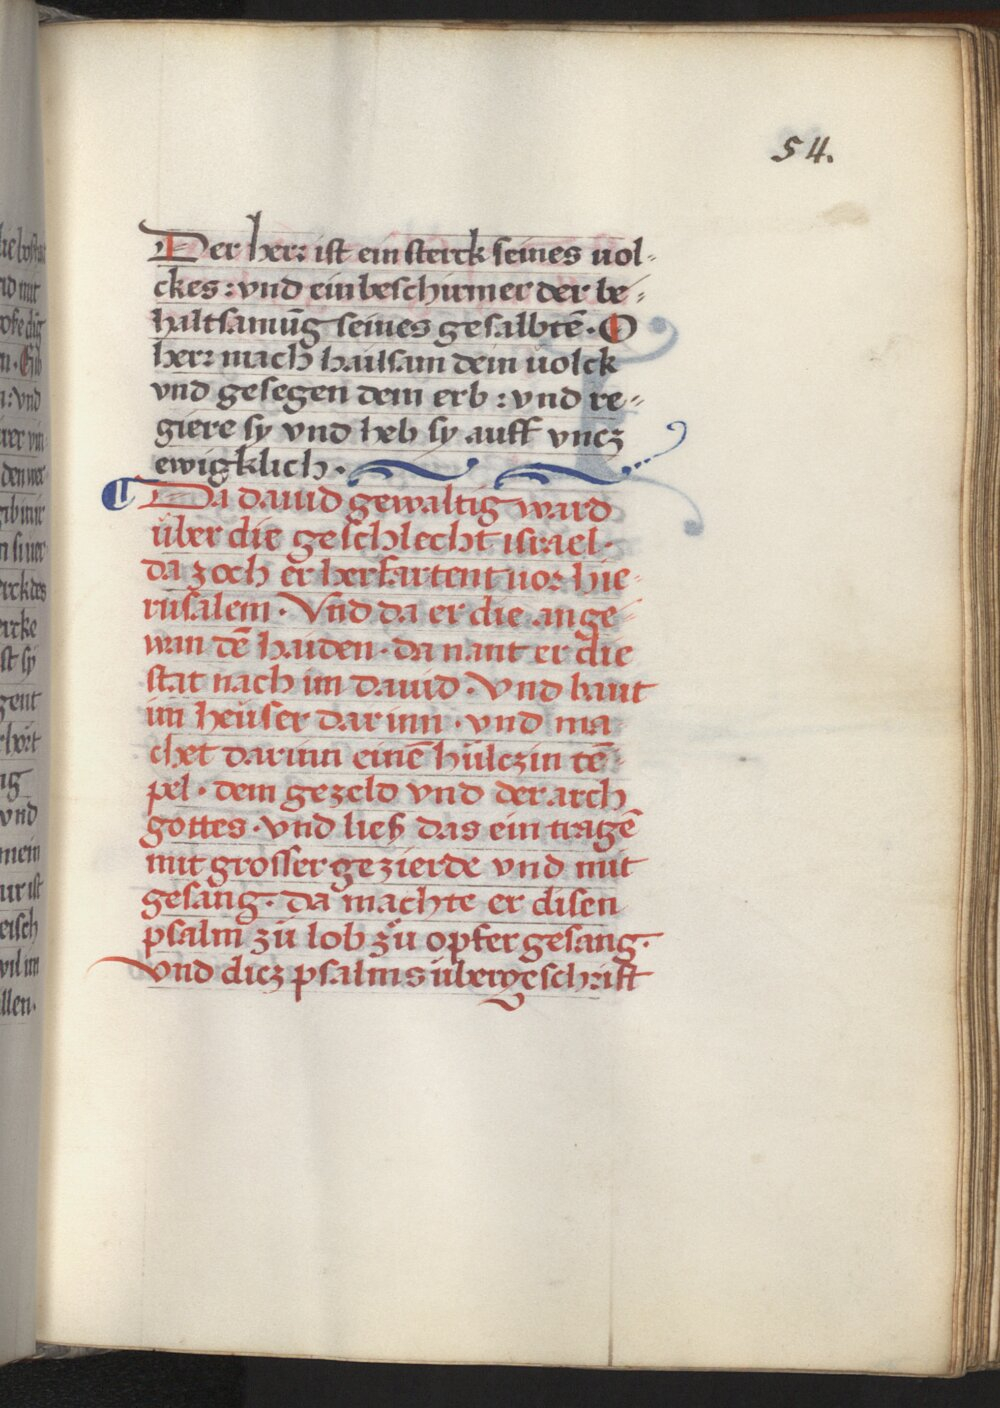 54.
Der herr ist ein sterck seines uol-
ckes : vnd ein beschirmer der be-
haltsamūg seines gesalbtē · O
herr mach hailsam dein uolck
vnd gesegen dein erb : vnd re-
giere sy vnd heb sy auff vncz
ewigklich ·
¶ Da dauid gewaltig ward
über die geschlecht israel ·
da zoch er herfartent uor hie-
rusalem · Vnd da er die ange-
wan dē haiden · da nant er die
stat nach im dauid · Vnd baut
im heüser dar inn · vnd ma
chet darinn einē hülczin tē-
pel · dem gezeld vnd der arch
gottes · vnd ließ das ein tragē
mit grosser gezierde vnd mit
gesang · da machte er disen
psalm zů lob zů opfer gesang ·
Vnd dicz psalms übergeschrift